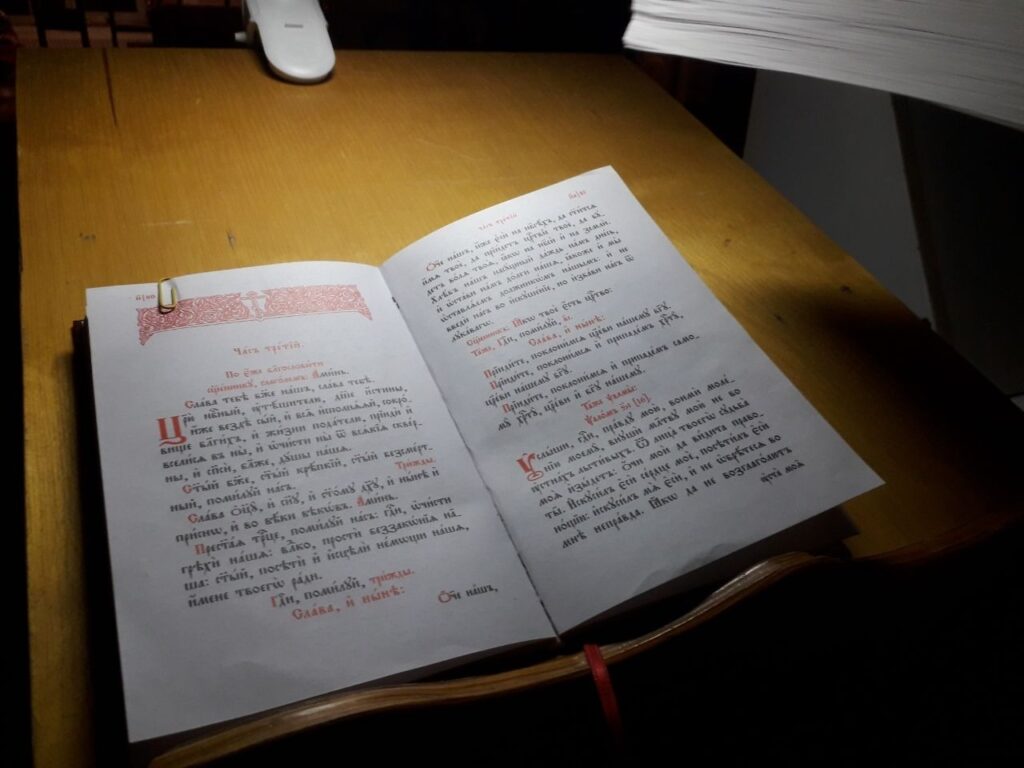 Ча́съ тре́тїй.
По є҆́же благослови́ти
сщ҃е́ннику, глаго́лемъ: А҆ми́нь.
Сла́ва тебѣ̀ бж҃е на́шъ, сла́ва тебѣ̀.
Цр҃ю̀ нбⷭ҇ный, ᲂу҆тѣ́шителю, дш҃е и҆́стины,
и҆́же вездѣ̀ сы́й, и҆ всѧ̑ и҆сполнѧ́ѧй, сокро́-
вище благи́хъ, и҆ жи́зни пода́телю, прїидѝ и҆
всели́сѧ въ ны̀, и҆ ѡ҆чи́сти ны̀ ѿ всѧ́кїѧ скве́р-
ны, и҆ сп҃сѝ, бл҃же, дꙋ́шы на́шѧ.
Трижды.
Ст҃ы́й бж҃е, ст҃ы́й крѣ́пкїй, ст҃ы́й безсме́рт-
ный, поми́лꙋй на́съ.
Сла́ва ѻ҆ц҃ꙋ̀, и҆ сн҃ꙋ, и҆ ст҃о́мꙋ дх҃ꙋ, и҆ ны́нѣ и҆
при́снѡ, и҆ во вѣ́ки вѣкѡ́въ. А҆ми́нь.
Прест҃а́ѧ трⷪ҇це, поми́лꙋй на́съ: гдⷭ҇и, ѡ҆чи́сти
грѣхѝ на́шѧ: влⷣко, простѝ беззакѡ́нїѧ на́-
ша: ст҃ы́й, посѣтѝ и҆ и҆сцѣлѝ не́мѡщи на́шѧ,
и҆́мене твоегѡ̀ ра́ди.
Гдⷭ҇и, поми́лꙋй, три́жды.
Сла́ва, и҆ ны́нѣ:
Ѻ҆́ч҃е на́шъ,
ча́съ тре́тїй
Ѻ҆́ч҃е на́шъ, и҆́же є҆сѝ на нб҃сѣ́хъ, да ст҃и́тсѧ
и҆́мѧ твоѐ, да прїи́детъ црⷭ҇твїе твоѐ, да бꙋ́-
детъ во́лѧ твоѧ̀, ꙗ҆́кѡ на нб҃сѝ и҆ на землѝ.
Хлѣ́бъ на́шъ насꙋ́щный да́ждь на́мъ дне́сь,
и҆ ѡ҆ста́ви на́мъ до́лги на́шѧ, ꙗ҆́коже и҆ мы̀
ѡ҆ставлѧ́емъ должникѡ́мъ на́шымъ: и҆ не
введѝ на́съ во и҆скꙋше́нїе, но и҆зба́ви на́съ ѿ
лꙋка́вагѡ:
Сщ҃е́нникъ: Ꙗ҆́кѡ твоѐ є҆́сть црⷭ҇тво:
Та́же, Гдⷭ҇и, поми́лꙋй, в҃і.
Сла́ва, и҆ ны́нѣ:
Прїиди́те, поклони́мсѧ цр҃е́ви на́шемꙋ бг҃ꙋ.
Прїиди́те, поклони́мсѧ и҆ припаде́мъ хрⷭ҇тꙋ̀,
цр҃е́ви на́шемꙋ бг҃ꙋ.
Прїиди́те, поклони́мсѧ и҆ припаде́мъ само-
мꙋ̀ хрⷭ҇тꙋ̀, цр҃е́ви и҆ бг҃ꙋ на́шемꙋ.
Та́же ѱалмы̀:
Ѱало́мъ ѕ҃і [16].
Оу҆слы́ши, гдⷭ҇и, пра́вдꙋ мою̀, вонмѝ моле́-
нїю моемꙋ̀, внꙋшѝ моли́твꙋ мою̀ не во
ᲂу҆стна́хъ льсти́выхъ. Ѿ лица̀ твоегѡ̀ сꙋдьба̀
моѧ̀ и҆зы́детъ: ѻ҆́чи моѝ да ви́дита правѡ-
ты̑. И҆скꙋси́лъ є҆сѝ се́рдце моѐ, посѣти́лъ є҆сѝ
но́щїю: и҆скꙋси́лъ мѧ̀ є҆сѝ, и҆ не ѡ҆брѣ́тесѧ во
мнѣ̀ непра́вда. Ꙗ҆́кѡ да не возглаго́лютъ
ᲂу҆ста̀ моѧ̑